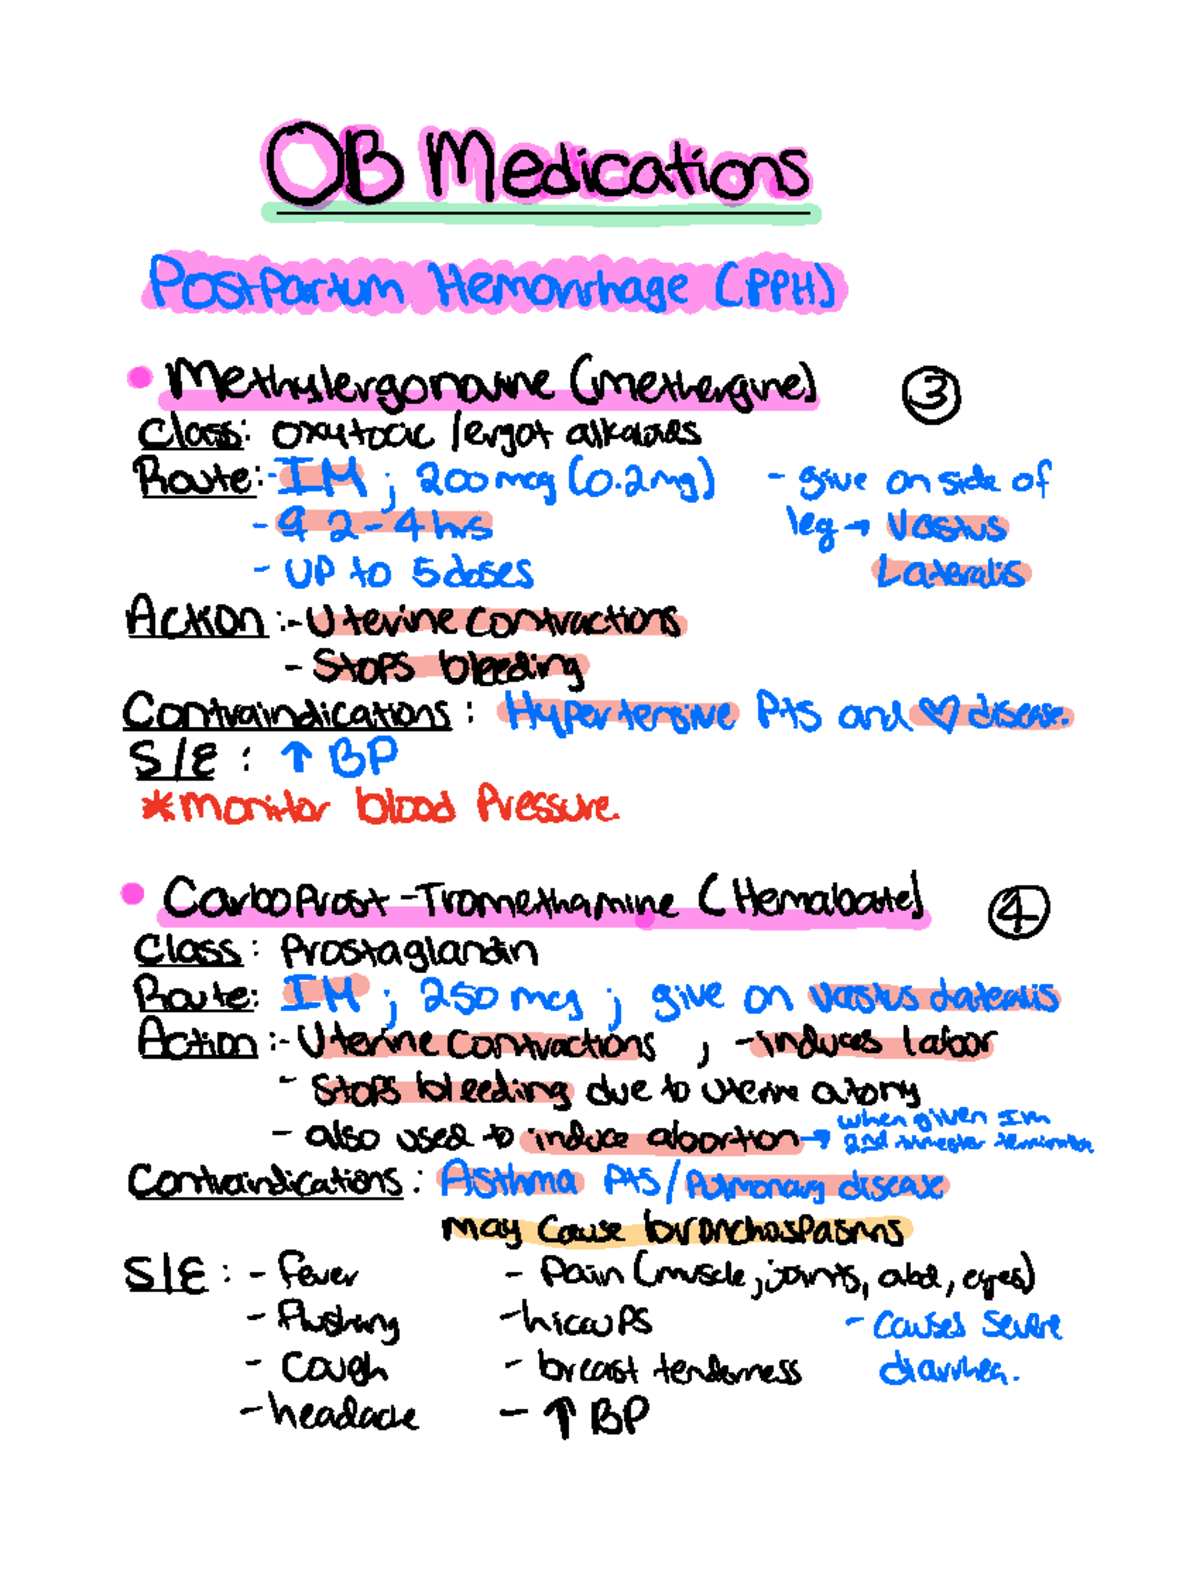 OB Medications
Postpartum Hemorrhage (PPH)
• Methylergonovine (methergine) ③
Class: oxytocic / ergot alkaloids
Route: - IM ; 200 mcg (0.2mg) - give on side of
- q 2-4 hrs leg → Vastus
- UP to 5 doses Lateralis
Action: - Uterine contractions
- Stops bleeding
Contraindications: Hypertensive Pts and ♡ disease.
S/E: ↑ BP
*monitor blood Pressure.
• Carboprost-Tromethamine (Hemabate) ④
Class: Prostaglandin
Route: IM ; 250 mcg ; give on vastus lateralis
Action: - Uterine contractions ; - induces labor
- Stops bleeding due to uterine atony
- also used to induce abortion → when given Im
2nd trimester termination
Contraindications: Asthma Pts / Pulmonary disease
may cause bronchospasms
S/E: - fever - Pain (muscle, joints, abd, eyes)
- flushing - hiccups - causes severe
- cough - breast tenderness diarrhea.
- headache - ↑ BP